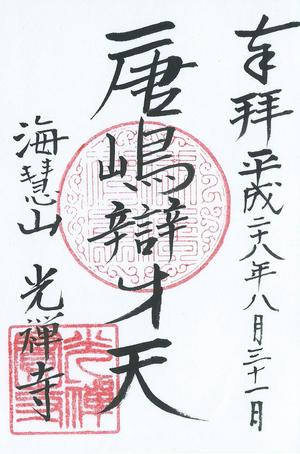 奉拝 平成二十八年八月三十一日
唐嶋辯才天
海慧山 光禅寺